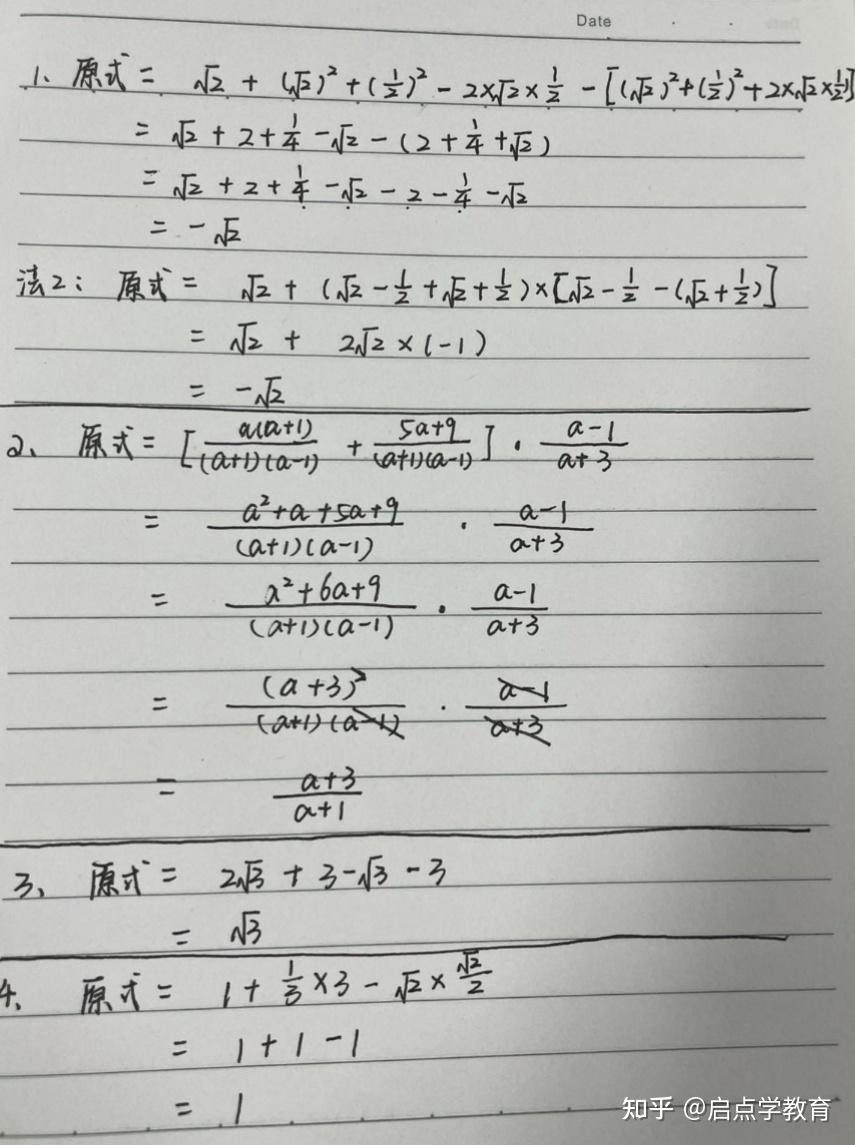 Date
1、原式 = √2 + (√2)² + (1/2)² - 2×√2×1/2 - [(√2)²+(1/2)²+2×√2×1/2]
= √2 + 2 + 1/4 - √2 - (2 + 1/4 + √2)
= √2 + 2 + 1/4 - √2 - 2 - 1/4 - √2
= - √2
法2: 原式 = √2 + (√2 - 1/2 + √2 + 1/2) × [√2 - 1/2 - (√2 + 1/2)]
= √2 + 2√2 × (-1)
= -√2
2、原式 = [a(a+1)/(a+1)(a-1) + 5a+9/(a+1)(a-1)] · a-1/a+3
= a²+a+5a+9/(a+1)(a-1) · a-1/a+3
= a²+6a+9/(a+1)(a-1) · a-1/a+3
= (a+3)²/(a+1)(a-1) · a-1/a+3
= a+3/a+1
3、原式 = 2√3 + 3 - √3 - 3
= √3
4、原式 = 1 + 1/3 × 3 - √2 × √2/2
= 1 + 1 - 1
= 1
知乎 @启点学教育